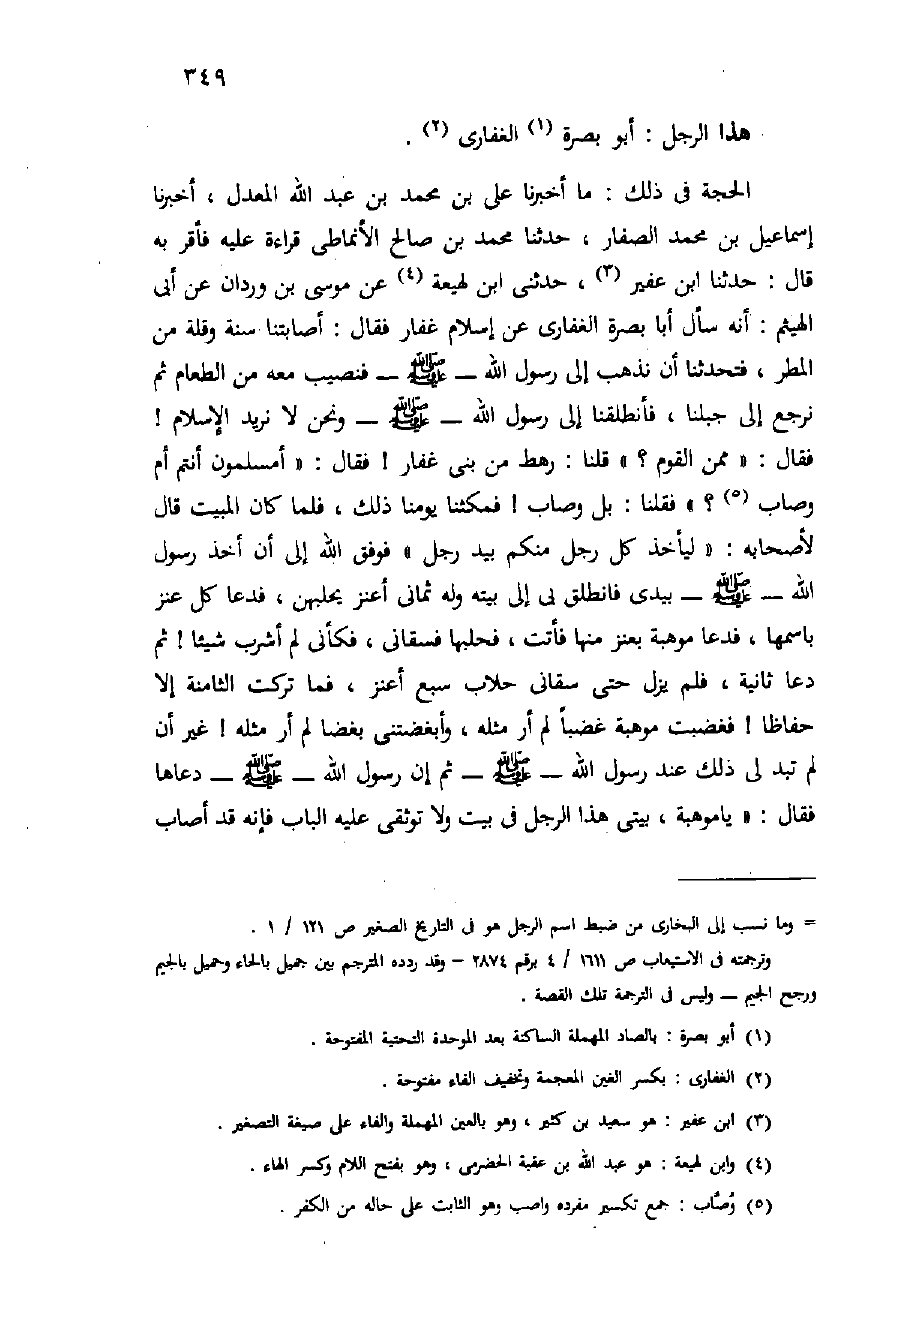 ٣٤٩
هذا الرجل : أبو بصرة (١) الغفارى (٢) .
الحجة فى ذلك : ما أخبرنا على بن محمد بن عبد الله المعدل ، أخبرنا
إسماعيل بن محمد الصفار ، حدثنا محمد بن صالح الأنماطى قراءة عليه فأقر به
قال : حدثنا ابن عفير (٣) ، حدثنى ابن لهيعة (٤) عن موسى بن وردان عن أبى
الهيثم : أنه سأل أبا بصرة الغفارى عن إسلام غفار فقال : أصابتنا سنة وقلة من
المطر ، فتحدثنا أن نذهب إلى رسول الله — ﷺ — فنصيب معه من الطعام ثم
نرجع إلى جبلنا ، فأنطلقنا إلى رسول الله — ﷺ — ونحن لا نريد الإسلام !
فقال : « ممن القوم ؟ » قلنا : رهط من بنى غفار ! فقال : « أمسلمون أنتم أم
وصاب (٥) ؟ » فقلنا : بل وصاب ! فمكثنا يومنا ذلك ، فلما كان المبيت قال
لأصحابه : « ليأخذ كل رجل منكم بيد رجل » فوفق الله إلى أن أخذ رسول
الله — ﷺ — بيدى فانطلق بى إلى بيته وله ثمانى أعنز يحلبهن ، فدعا كل عنز
باسمها ، فدعا موهبة بعنز منها فأتت ، فحلبها فسقانى ، فكأنى لم أشرب شيئا ! ثم
دعا ثانية ، فلم يزل حتى سقانى حلاب سبع أعنز ، فما تركت الثامنة إلا
حفاظا ! فغضبت موهبة غضباً لم أر مثله ، وأبغضتنى بغضا لم أر مثله ! غير أن
لم تبد لى ذلك عند رسول الله — ﷺ — ثم إن رسول الله — ﷺ — دعاها
فقال : « ياموهبة ، بيتى هذا الرجل فى بيت ولا توثقى عليه الباب فإنه قد أصاب
= وما نسب إلى البخارى من ضبط اسم الرجل هو فى التاريخ الصغير ص ١٢١ / ١ .
وترجمته فى الاستيعاب ص ١٦١١ / ٤ برقم ٢٨٧٤ – وقد ردده المترجم بين جميل بالحاء وحميل بالجيم
ورجع الجيم — وليس فى الترجمة تلك القصة .
(١) أبو بصرة : بالصاد المهملة الساكنة بعد الموحدة التحتية المفتوحة .
(٢) الغفارى : بكسر الغين المعجمة وتخفيف الفاء مفتوحة .
(٣) ابن عفير : هو سعيد بن كثير ، وهو بالعين المهملة والفاء على صيغة التصغير .
(٤) وابن لهيعة : هو عبد الله بن عقبة الحضرمى ، وهو بفتح اللام وكسر الهاء .
(٥) وُصَّاب : جمع تكسير مفرده واصب وهو الثابت على حاله من الكفر .